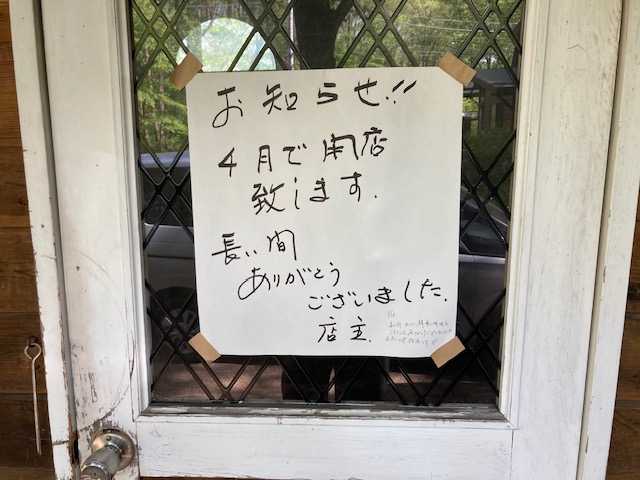 お知らせ!!
4月で閉店
致します.
長い間
ありがとう
ございました.
店主.